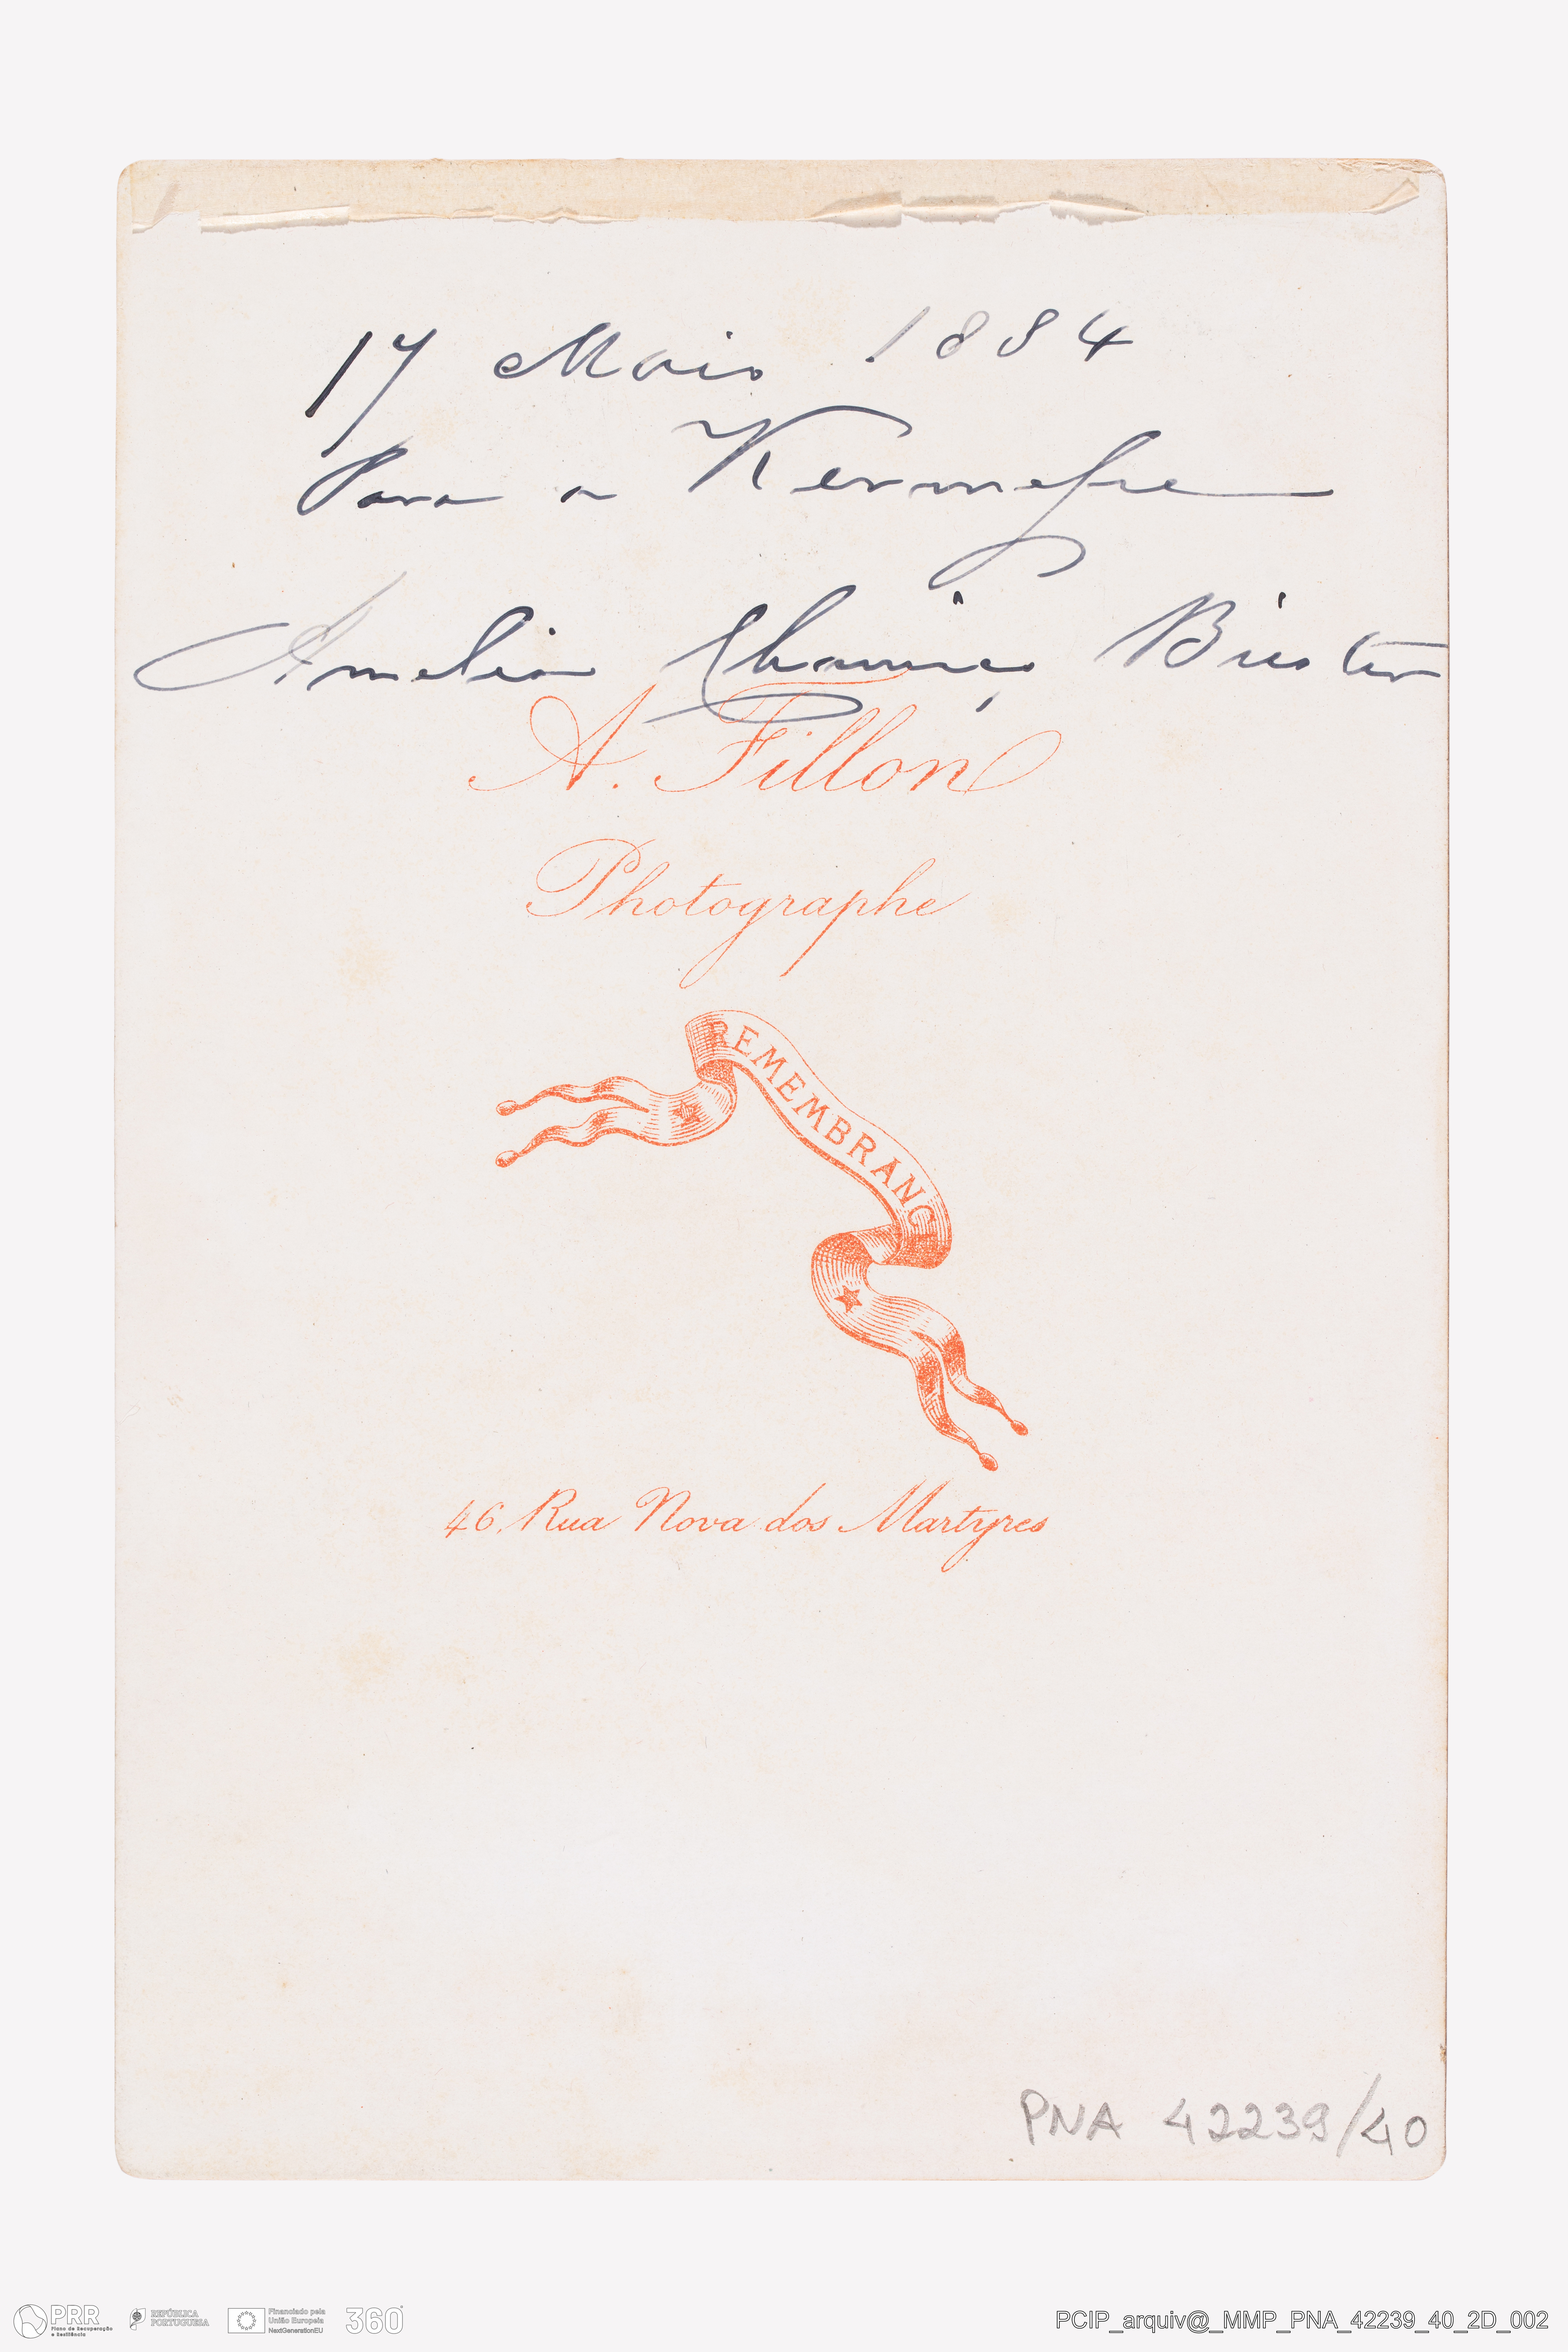 17 Maio 1884
Para a Kermesse
Amelia Chamiço Biester
A. Fillon
Photographe
REMEMBRANC
46, Rua Nova dos Martyres
PNA 42239/40
PRR
Plano de Recuperação
e Resiliência
REPÚBLICA
PORTUGUESA
Financiado pela
União Europeia
NextGenerationEU
360°
PCIP_arquiv@_MMP_PNA_42239_40_2D_002